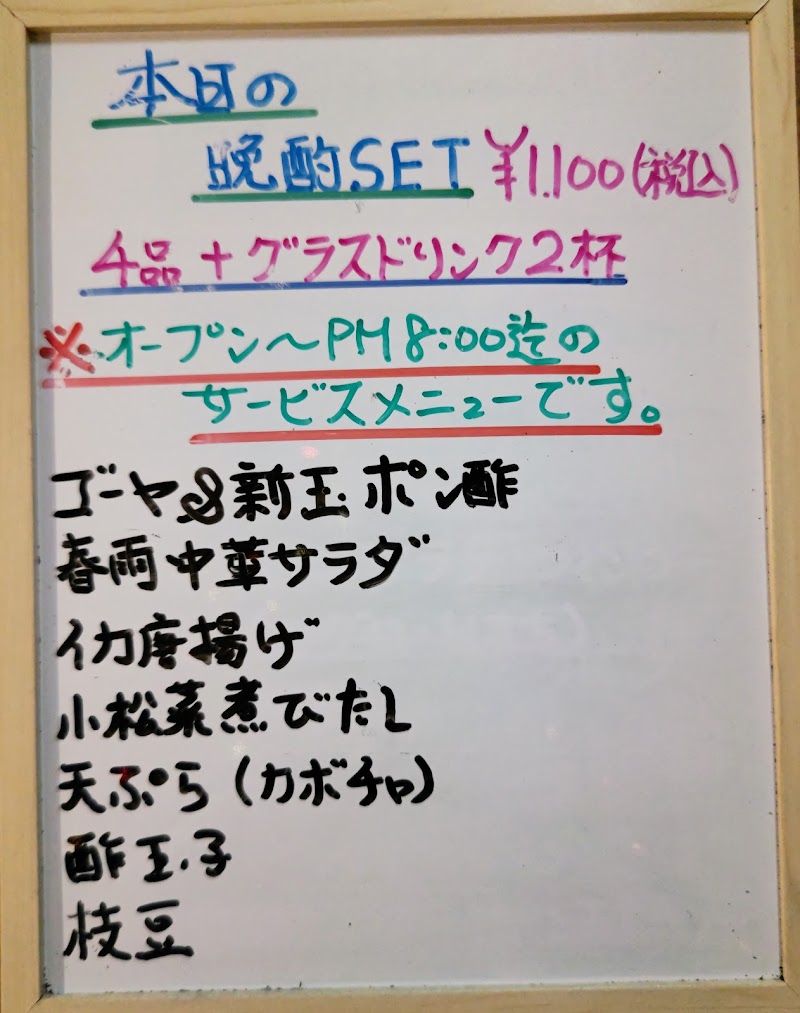 本日の
晩酌SET ¥1.100(税込)
4品+グラスドリンク2杯
※オープン〜PM8:00迄の
サービスメニューです。
ゴーヤ&新玉ポン酢
春雨中華サラダ
イカ唐揚げ
小松菜煮びたし
天ぷら(カボチャ)
酢玉子
枝豆